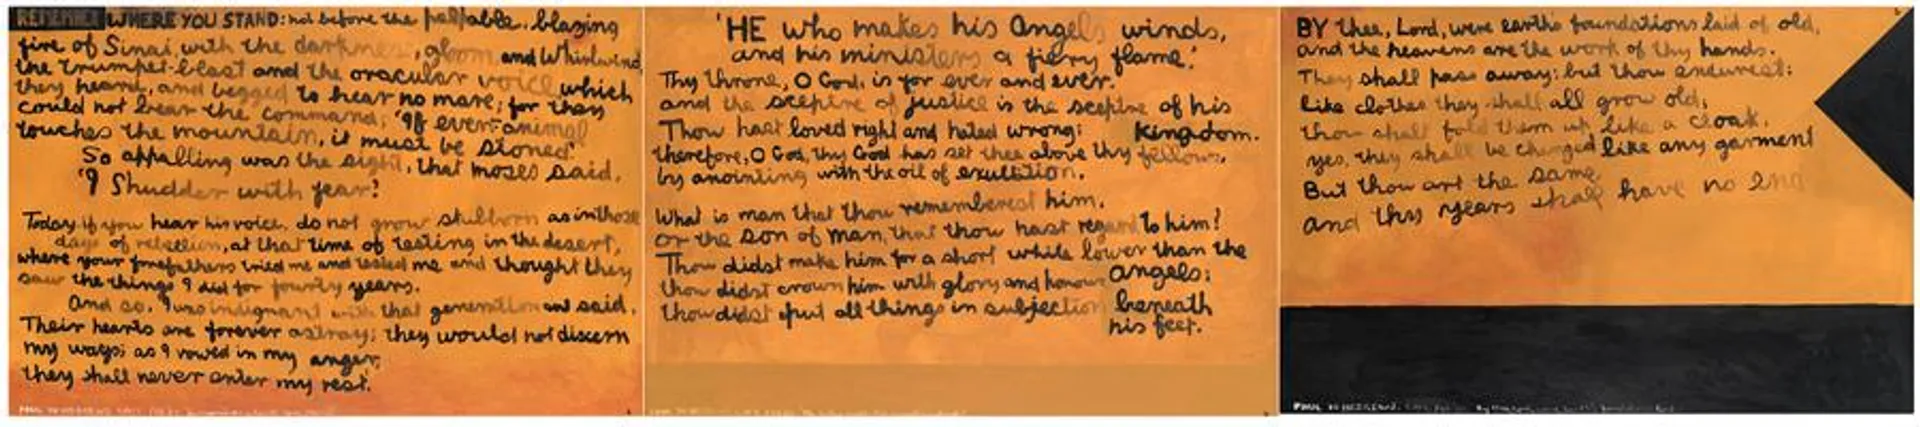 REMEMBER WHERE YOU STAND: not before the palpable, blazing
fire of Sinai, with the darkness, gloom and whirlwind,
the trumpet-blast and the oracular voice which
they heard, and begged to hear no more; for they
could not bear the command, 'If even an animal
touches the mountain, it must be stoned'.
So appalling was the sight, that Moses said,
'I Shudder with fear!'
Today if you hear his voice, do not grow stubborn as in those
days of rebellion, at that time of testing in the desert,
where your forefathers tried me and tested me and thought they
saw the things I did for fourty years.
And so, I was indignant with that generation and said,
Their hearts are forever astray; they would not discern
my ways; as I vowed in my anger,
they shall never enter my rest'.
'HE who makes his Angels winds,
and his ministers a fiery flame'.'
Thy throne, O God, is for ever and ever.
and the sceptre of justice is the sceptre of his
Thou hast loved right and hated wrong; Kingdom.
therefore, O God, thy God has set thee above thy fellows,
by anointing with the oil of exultation.
What is man that thou rememberest him,
or the son of man, that thou hast regard to him?
Thou didst make him for a short while lower than the
angels;
thou didst crown him with glory and honour
thou didst put all things in subjection beneath
his feet.
BY thee, Lord, were earth's foundations laid of old,
and the heavens are the work of thy hands.
They shall pass away: but thou endurest:
like clothes they shall all grow old,
thou shalt fold them up like a cloak,
yes, they shall be changed like any garment
But thou art the same
and thy years shall have no end